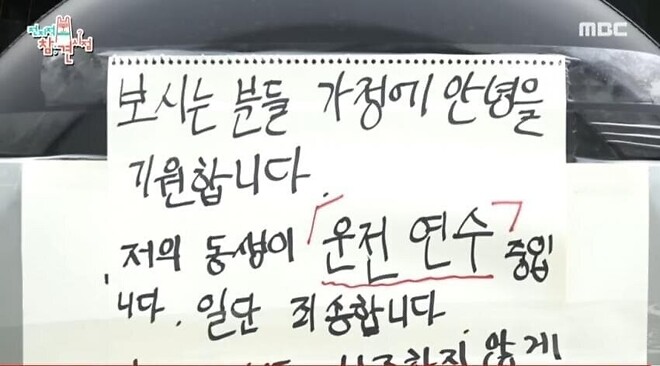 전지적 참견시점
MBC
보시는 분들 가정에 안녕을
기원합니다.
저의 동생이 「운전 연수」 중입
니다. 일단 죄송합니다.
않게